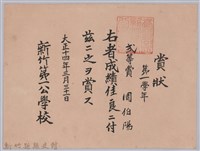 賞狀
第一學年
貳等賞 周伯陽
右者成績佳良ニ付
茲ニ之ヲ賞ス
大正十四年三月二十日
新竹第一公學校